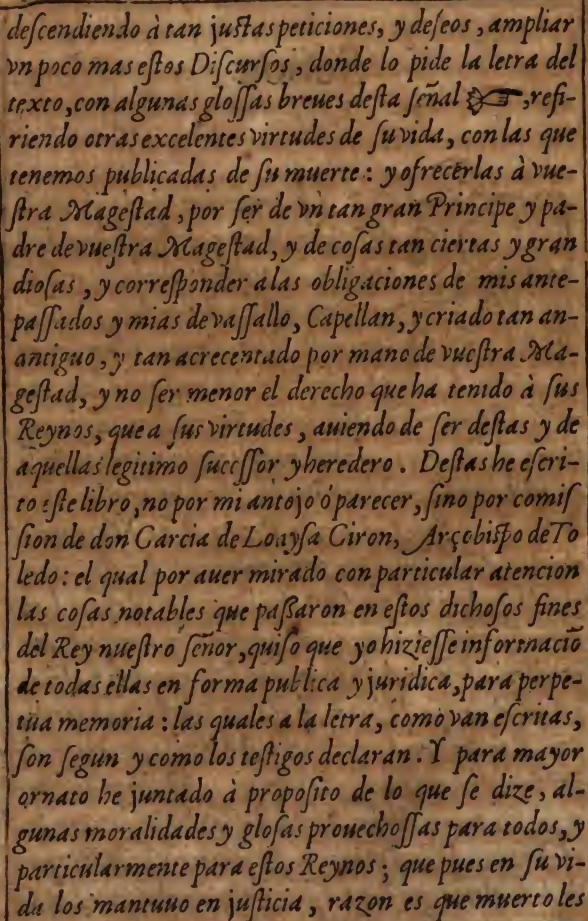 descendiendo à tan justas peticiones, y deseos, ampliar
vn poco mas estos Discursos, donde lo pide la letra del
texto, con algunas glossas breues desta señal ☞, refi-
riendo otras excelentes virtudes de su vida, con las que
tenemos publicadas de su muerte: y ofrecerlas à vue-
stra Magestad, por ser de vn tan gran Principe y pa-
dre de vuestra Magestad, y de cosas tan ciertas y gran
diosas, y corresponder a las obligaciones de mis ante-
passados y mias de vassallo, Capellan, y criado tan an-
antiguo, y tan acrecentado por mano de vuestra Ma-
gestad, y no ser menor el derecho que ha tenido à sus
Reynos, que a sus virtudes, auiendo de ser destas y de
aquellas legitimo sucessor y heredero. Destas he escri-
to este libro, no por mi antojo ó parecer, sino por comis
sion de don Garcia de Loaysa Giron, Arçobispo de To
ledo: el qual por auer mirado con particular atencion
las cosas notables que passaron en estos dichosos fines
del Rey nuestro señor, quiso que yo hiziesse informaciõ
de todas ellas en forma publica y juridica, para perpe-
tua memoria: las quales a la letra, como van escritas,
son segun y como los testigos declaran. Y para mayor
ornato he juntado à proposito de lo que se dize, al-
gunas moralidades y glosas prouechossas para todos, y
particularmente para estos Reynos; que pues en su vi-
da los mantuuo en justicia, razon es que muerto les